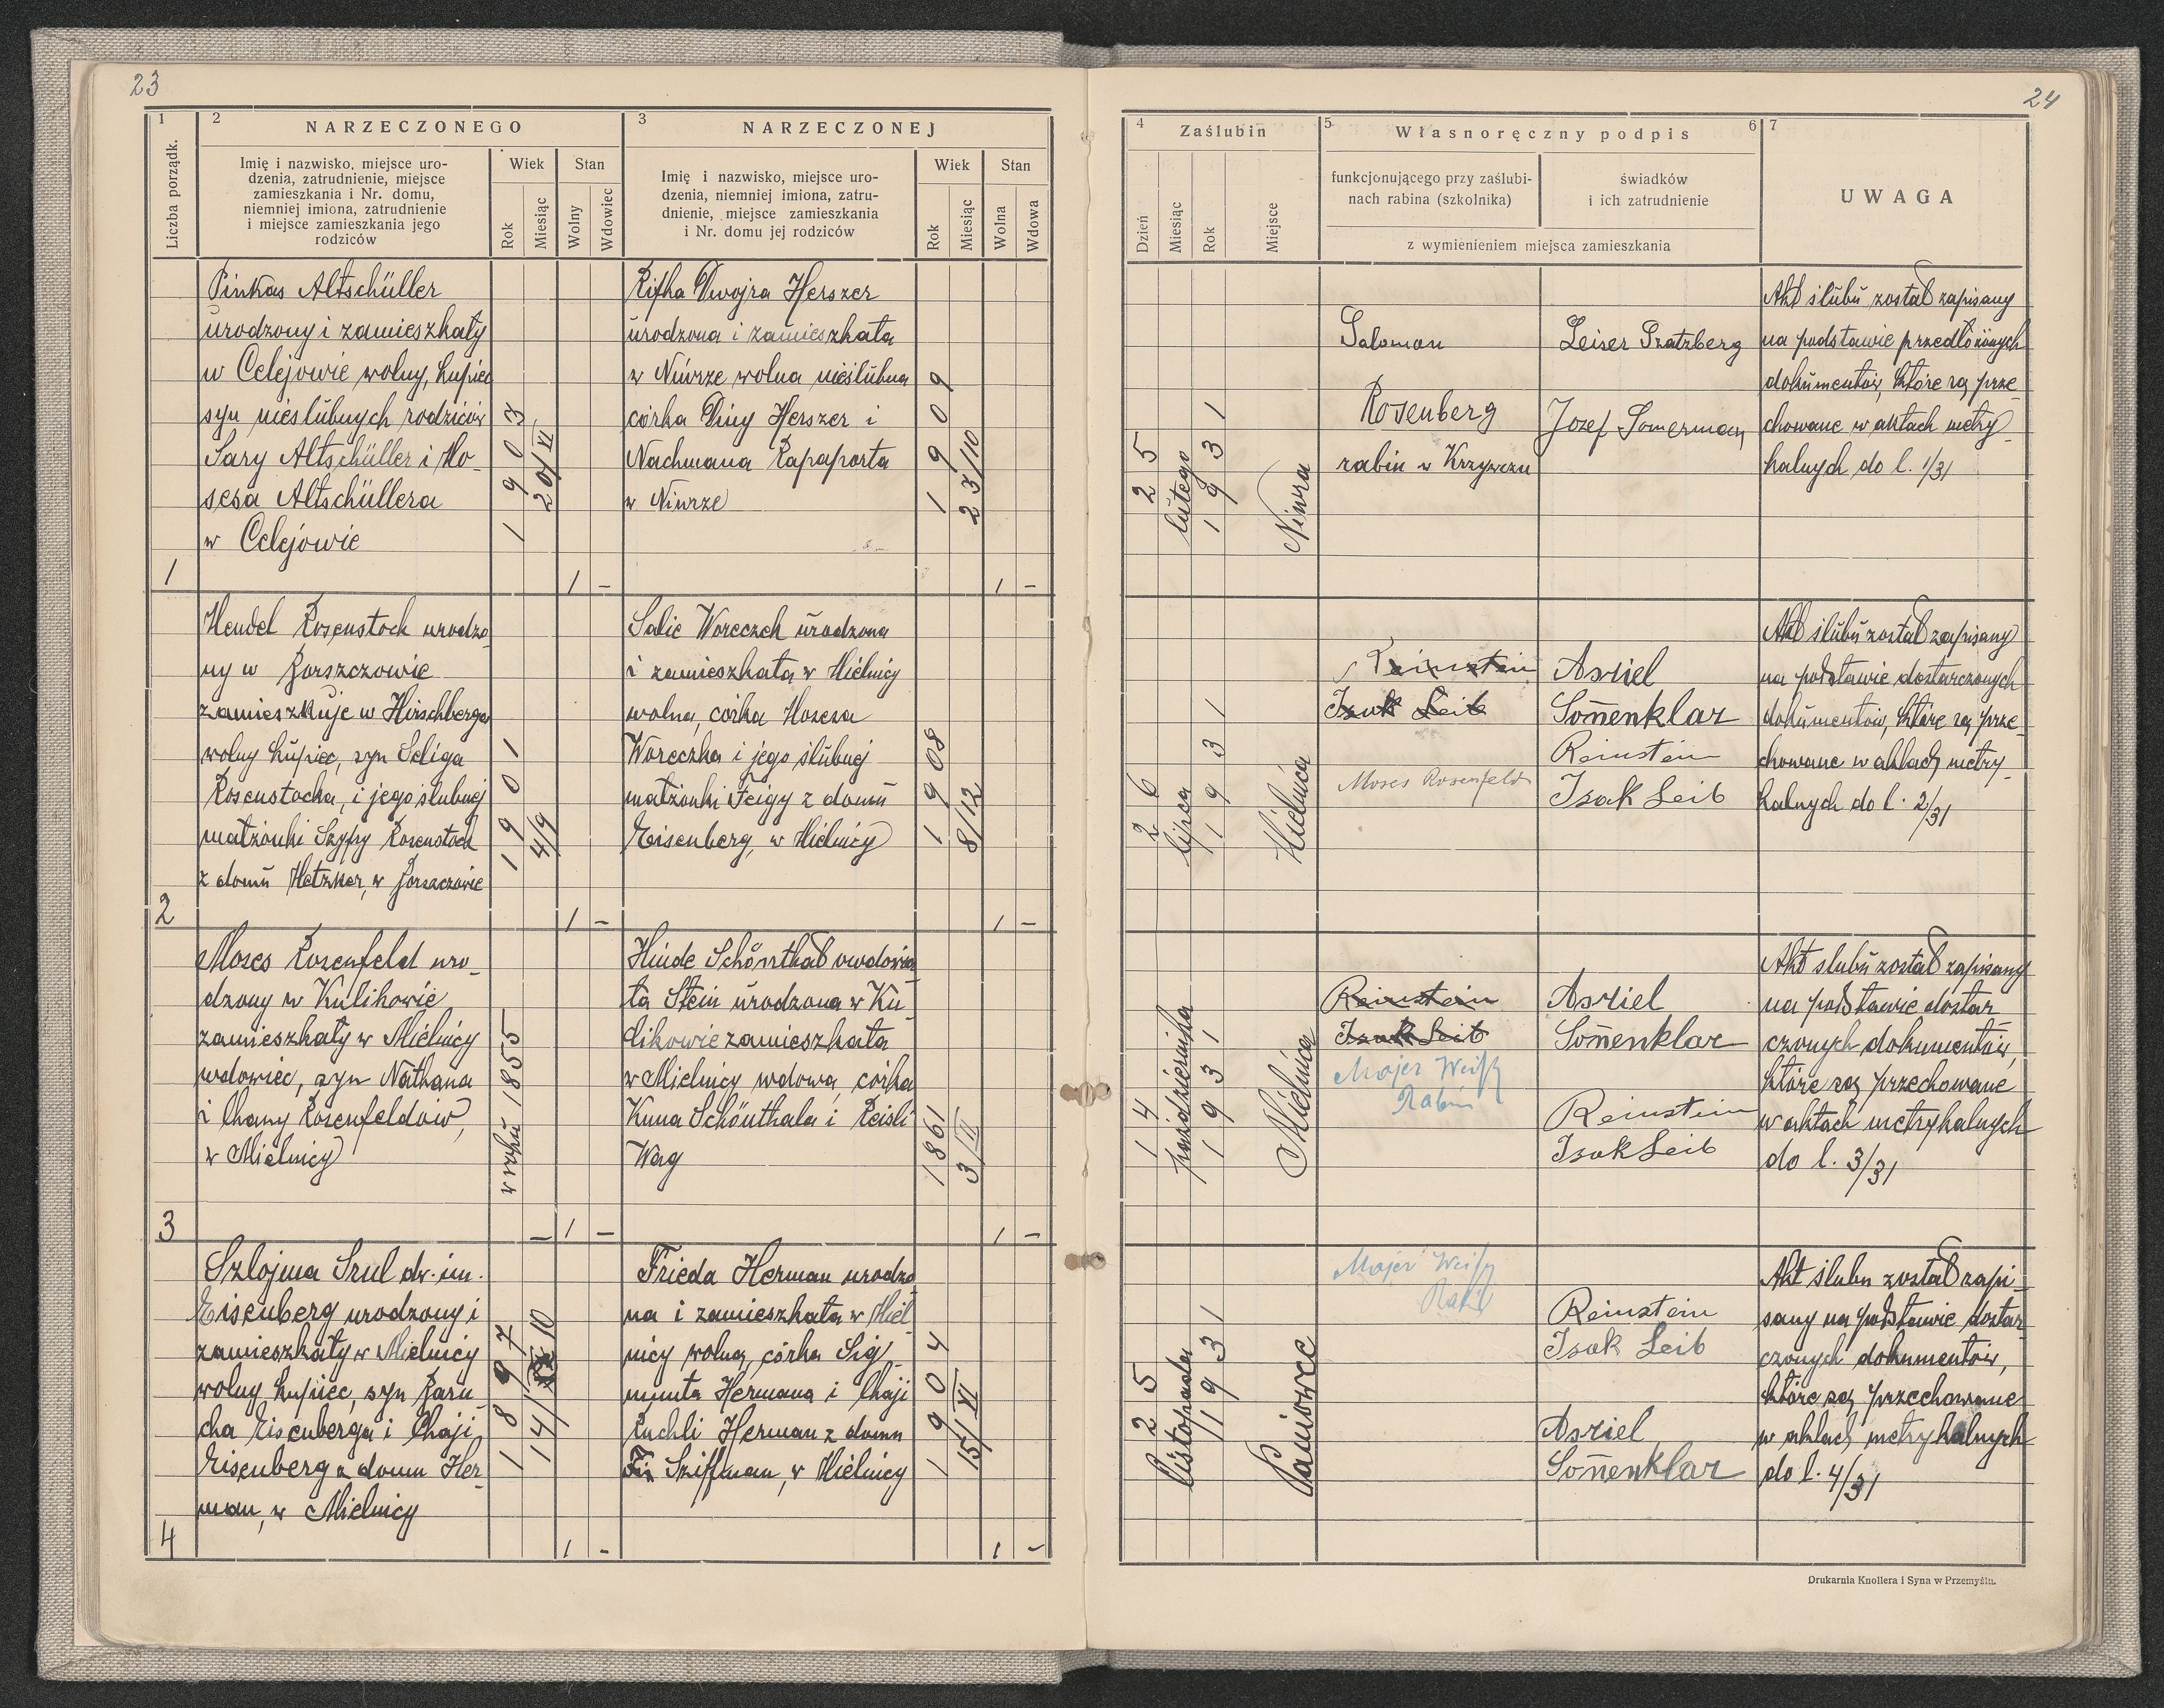 23
24
1
Liczba porządk.
2
NARZECZONEGO
Imię i nazwisko, miejsce uro-
dzenia, zatrudnienie, miejsce
zamieszkania i Nr. domu,
niemniej imiona, zatrudnienie
i miejsce zamieszkania jego
rodziców
Wiek
Rok
Miesiąc
Stan
Wolny
Wdowiec
3
NARZECZONEJ
Imię i nazwisko, miejsce uro-
dzenia, niemniej imiona, zatru-
dnienie, miejsce zamieszkania
i Nr. domu jej rodziców
Wiek
Rok
Miesiąc
Stan
Wolna
Wdowa
4
Zaślubin
Dzień
Miesiąc
Rok
Miejsce
5
Własnoręczny podpis
6
funkcjonującego przy zaślubi-
nach rabina (szkolnika)
świadków
i ich zatrudnienie
z wymienieniem miejsca zamieszkania
7
UWAGA
1
Pinkas Altschüller
urodzony i zamieszkały
w Celejowie wolny, kupiec
syn nieslubnych rodziców
Sary Altschüller i Mo-
sesa Altschüllera
w Celejowie
1903
20/VI
1 –
Rifka Dwojra Herszer
urodzona i zamieszkała
w Niwrze wolna nieślubna
córka Diny Herszer i
Nachmana Rapaporta
w Niwrze
1909
23/10
1 –
25
lutego
1931
Niwra
Salomon
Rosenberg
rabin w Krzywczu
Leiser Pratzberg
Jozef Somerman
Akt ślubu został zapisany
na podstawie przedłożonych
dokumentów, które są prze
chowane w aktach metry-
kalnych do l. 1/31
2
Hendel Rosenstock urodzo
ny w Borszczowie
zamieszkuje w Hirschbergu
wolny kupiec, syn Seliga
Rosenstocka, i jego ślubnej
małżonki Szyfry Rosenstock
z domu Hetzker, w Borszczowie
1901
4/9
1 –
Salie Woreczek urodzona
i zamieszkała w Mielnicy
wolna, córka Mosesa
Woreczka i jego ślubnej
małżonki Feigy z domu
Eisenberg, w Mielnicy
1908
8/12
1 –
26
lipca
1931
Mielnica
Reinstein
Isak Leib
Moses Rosenfeld
Asriel
Sonnenklar
Reinstein
Isak Leib
Akt ślubu został zapisany
na podstawie dostarczonych
dokumentów, które są prze-
chowane w aktach metry-
kalnych do l. 2/31
3
Moses Rosenfeld uro-
dzony w Kulikowie
zamieszkały w Mielnicy
wdowiec, syn Nathana
i Chany Rosenfeldów,
w Mielnicy
w roku 1855
– 1 –
Hinde Schönthal owdowia
ła Stein urodzona w Ku-
likowie zamieszkała
w Mielnicy wdowa, córka
Kuna Schönthala i Reisli
Wag
1861
3/II
1 –
14
października
1931
Mielnica
Reinstein
Isak Leib
Majer Weiss
Rabin
Asriel
Sonnenklar
Reinstein
Isak Leib
Akt slubu został zapisany
na podstawie dostar
czonych dokumentów,
które są przechowane
w aktach metrykalnych
do l. 3/31
4
Szlojma Srul dw. im.
Eisenberg urodzony i
zamieszkały w Mielnicy
wolny kupiec, syn Baru
cha Eisenberga i Chaji
Eisenberg z domu Her-
man, w Mielnicy
1897
14/10
1 –
Frieda Herman urodzo
na i zamieszkała w Miel
nicy wolna, córka Sig-
munta Hermana i Chaji
Ruchli Herman z domu
Sziffman, w Mielnicy
1904
15/VI
1 –
25
listopada
1931
Paniowce
Majer Weiss
Rabin
Reinstein
Isak Leib
Asriel
Sonnenklar
Akt ślubu został zapi-
sany na podstawie dostar
czonych dokumentów,
które są przechowane
w aktach metrykalnych
do l. 4/31
Drukarnia Knollera i Syna w Przemyślu.